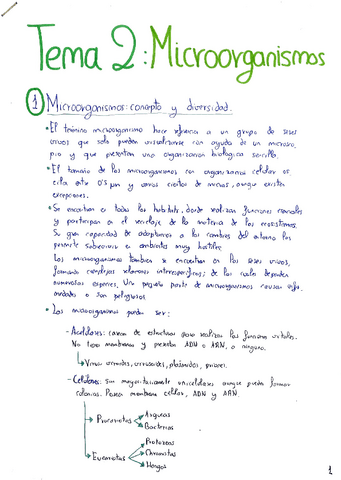 Tema 2: Microorganismos
1 Microorganismos: concepto y diversidad.
• El término microorganismo hace referencia a un grupo de seres
vivos que solo pueden visualizarse con ayuda de un microsco-
pio y que presentan una organización biológica sencilla.
• El tamaño de los microorganismos con organización celular os-
cila entre 0'5 µm y varios cientos de micras, aunque existen
excepciones.
• Se encuentran en todos los hábitats, donde realizan funciones
y participan en el reciclaje de la materia de los ecosistemas.
Su gran capacidad de adaptarse a los cambios del entorno les
permite sobrevivir en ambientes muy hostiles.
Los microorganismos también se encuentran en los seres vivos,
formando complejas relaciones interespecíficas; de las cuales dependen
numerosas especies. Una pequeña parte de microorganismos causan enfer-
medades o son peligrosos
• Los microorganismos pueden ser:
- Acelulares: carecen de estructuras para realizar las funciones vitales.
No tienen membrana y presentan ADN o ARN, o ninguno.
Virus, viroides, virusoides, plásmidos, priones.
- Celulares: son mayoritariamente unicelulares aunque pueden formar
colonias. Poseen membrana celular, ADN y ARN.
Procariotas
Arqueas
Bacterias
Eucariotas
Protozoos
Cromistas
Hongos
1